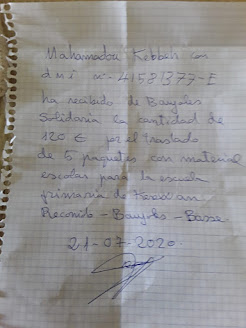 Mahamadou Kebbah con
dni nº - 41581377-E
ha recibido de Banyoles
Solidaria la cantidad de
120 € por el traslado
de 5 paquetes con material
escolar para la escuela
primaria de
Recorrido - Banyoles - Basse
21-07-2020